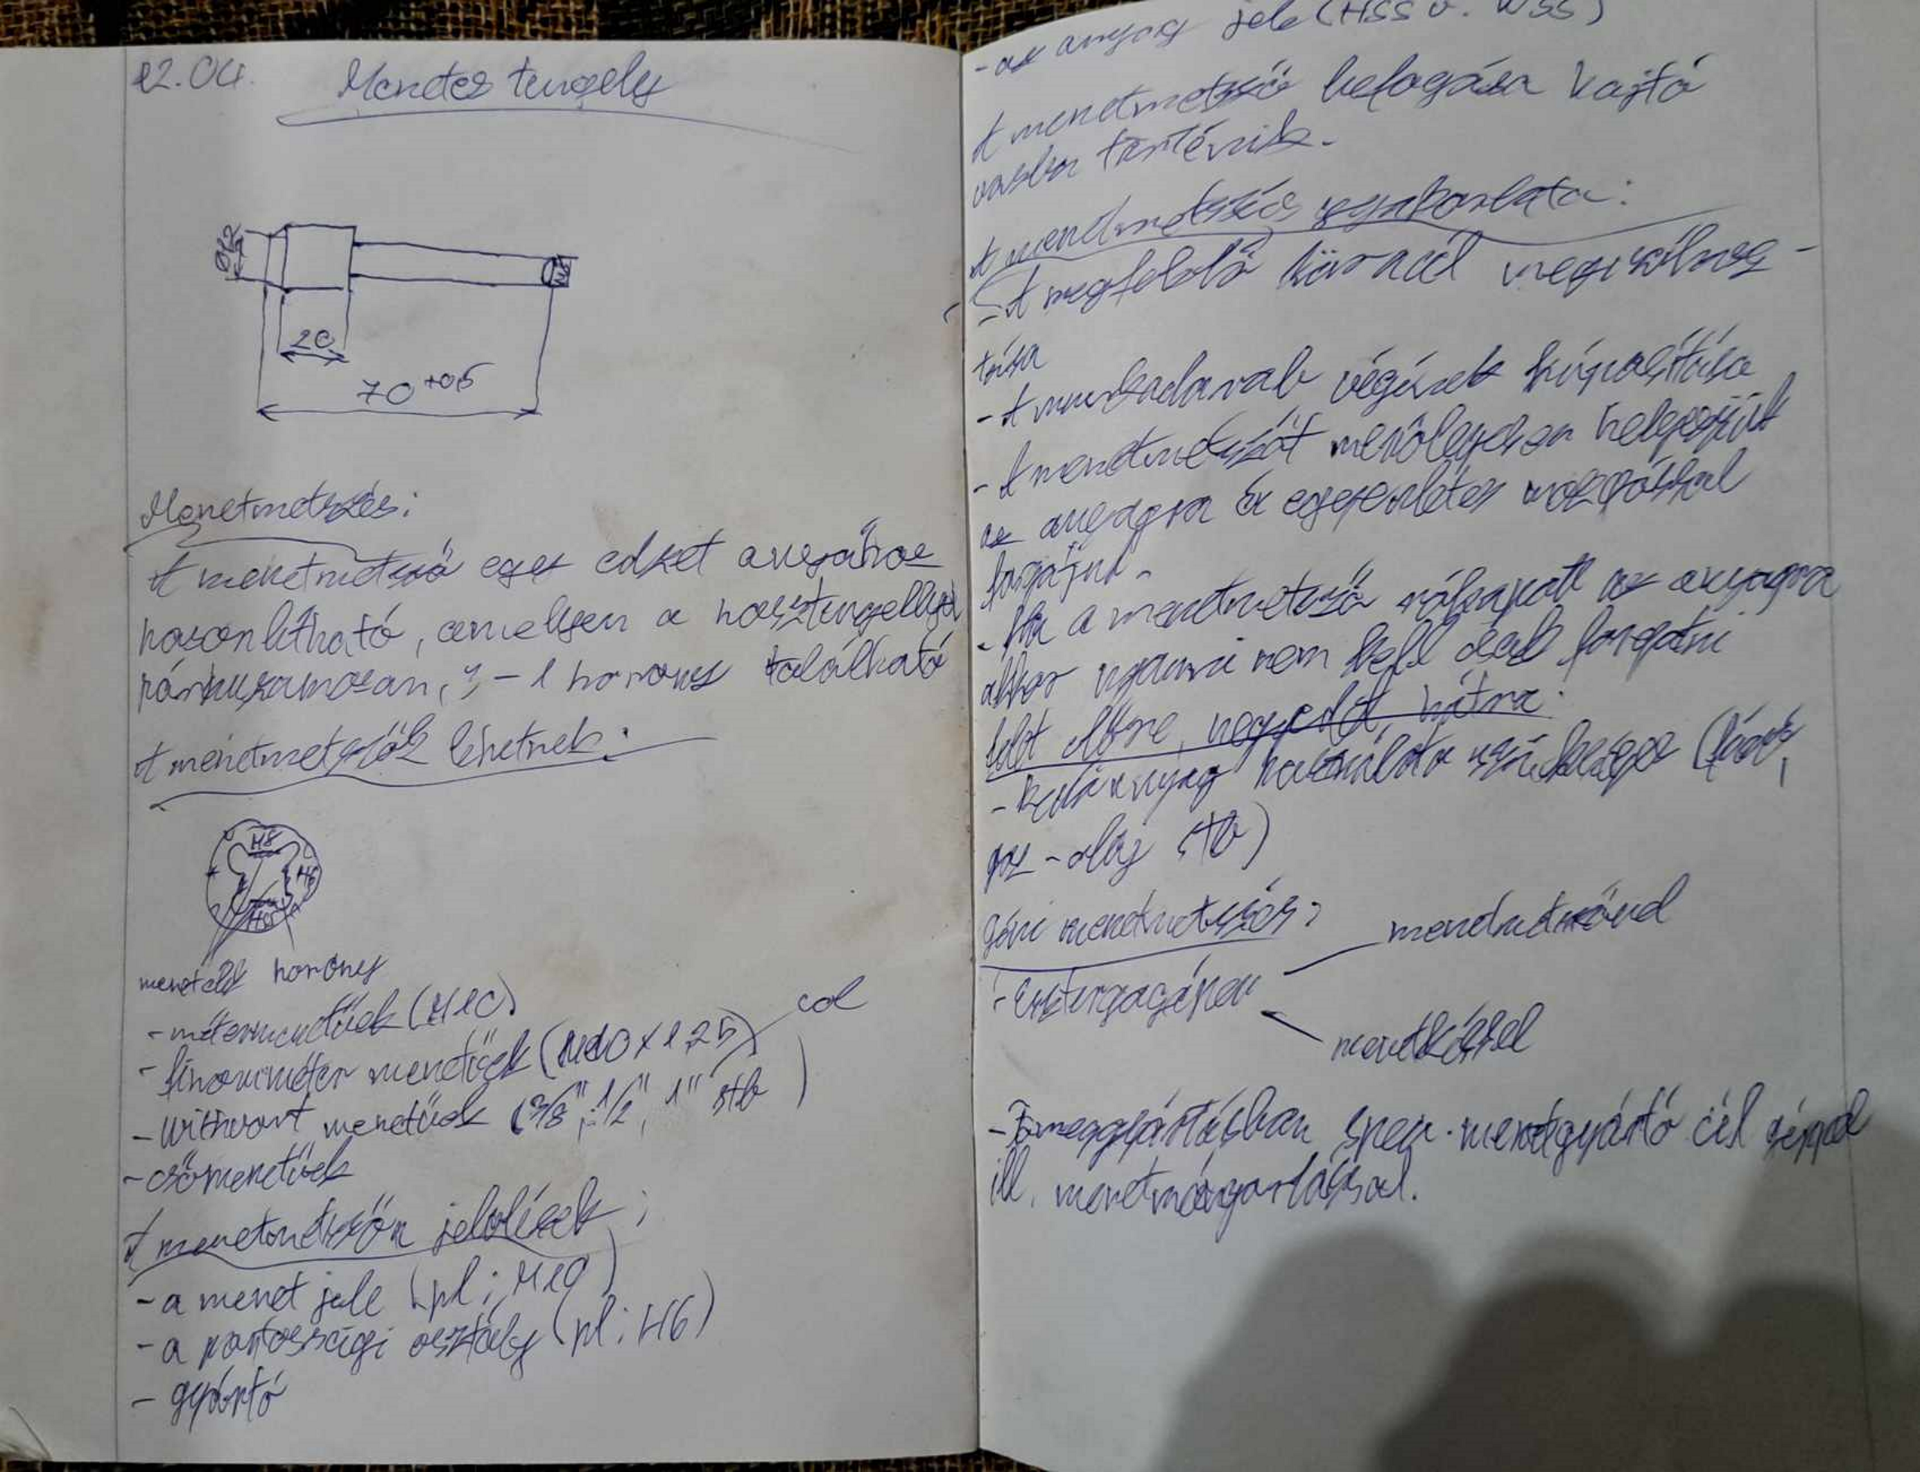 12.04.
Menetes tengely
Ø12
M8
20
70 +0,5
Menetmetszés:
A menetmetsző egy edzet anyához
hasonlítható, amelyen a hossztengellyel
párhuzamosan, 3 - 1 horony található
A menetmetszők lehetnek:
M8
menetélek horony
- métermenetűek (M10)
- finomméter menetűek (M10x1,25) col
- withvort menetűek (3/8", 1/2", 1" stb )
- csőmenetűek
A menetmetszőn jelölések:
- a menet jele (pl: M10)
- a pontossági osztály (pl: H6)
- gyártó
- az anyag jele (HSS v. WSS)
A menetmetsző befogása hajtó
vasba történik.
A menetmetszés gyakorlata:
- A megfelelő köracél megválasz-
tása
- A munkadarab végének kúposítása
- A menetmetszőt merőlegesen helyezzük
az anyagra és egyenletes mozgással
forgatjuk.
- Ha a menetmetsző ráharapott az anyagra
akkor nyomni nem kell csak forgatni
felet előre, negyedet hátra.
- Kenőanyag használata szükséges (
gáz-olaj stb)
Gépi menetmetszés:
menetmetszővel
- Esztergagépen
menetkéssel
- Tömeggyártásban spec. menetgyártó cél géppel
ill. menetmángorlással.